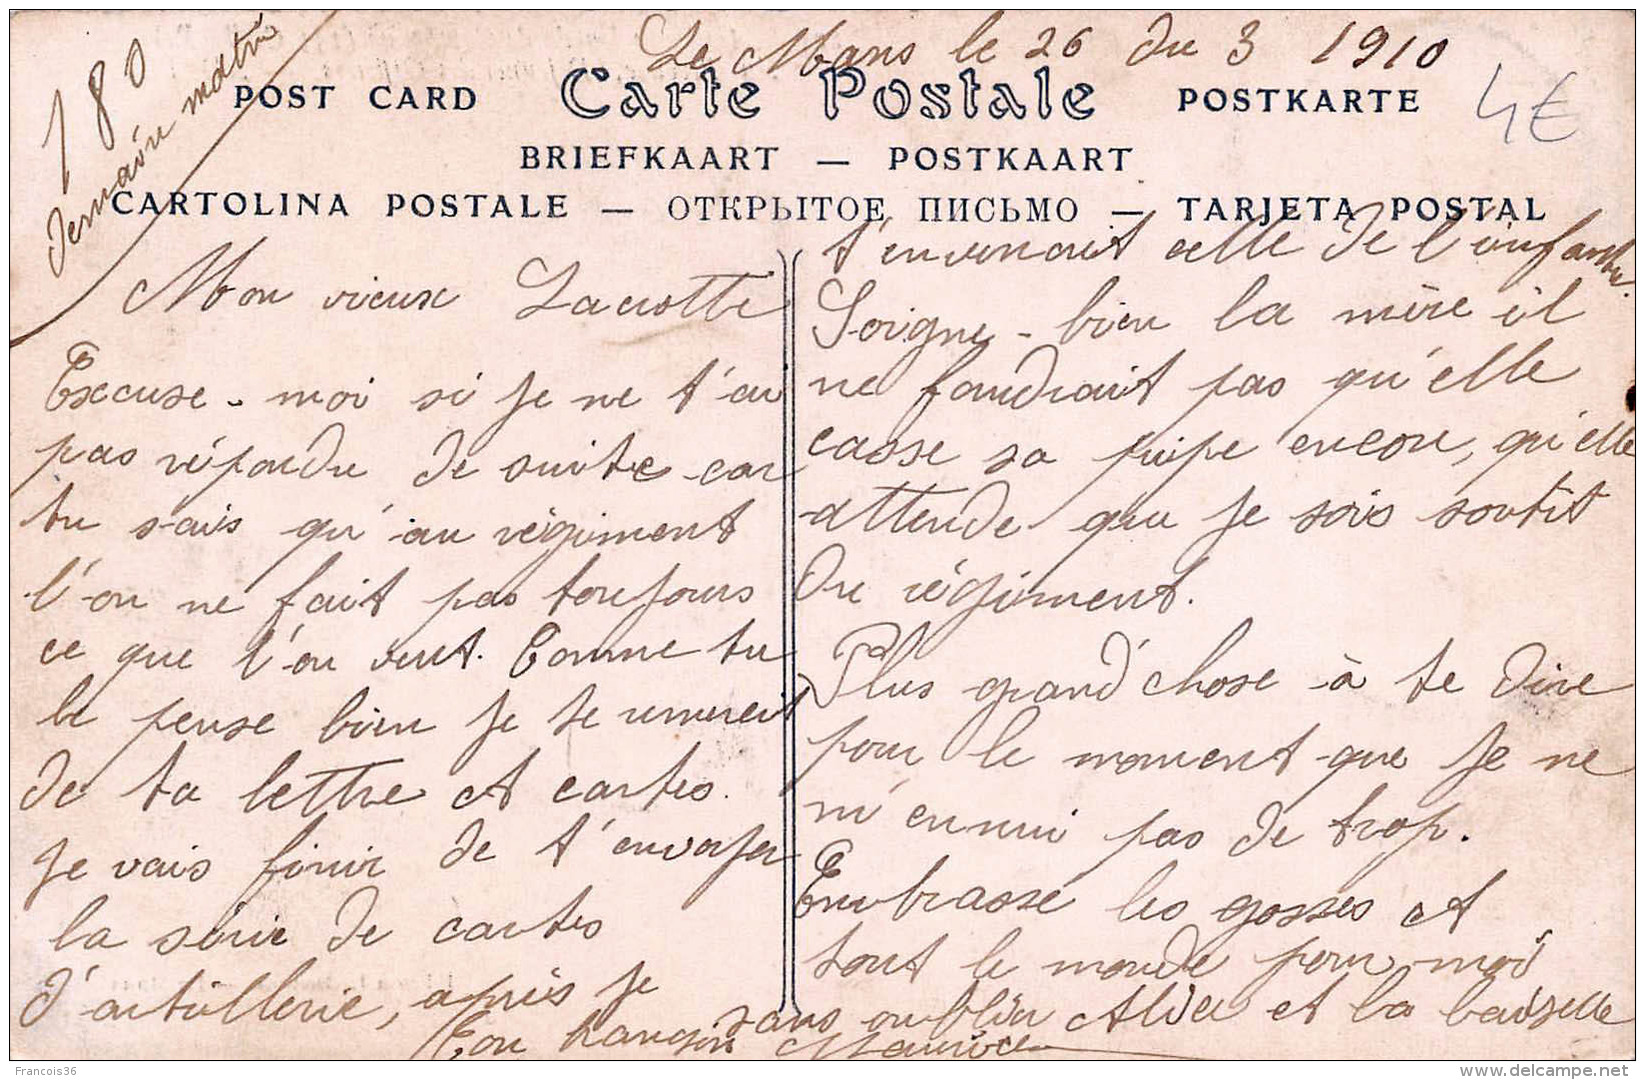 Le Mans le 26 du 3 1910
180
demain matin
POST CARD Carte Postale POSTKARTE
4€
BRIEFKAART — POSTKAART
CARTOLINA POSTALE — ОТКРЫТОЕ ПИСЬМО — TARJETA POSTAL
Mon vieux Lacrotte
Excuse-moi si je ne t'ai
pas répondu de suite car
tu sais qu'au régiment
l'on ne fait pas toujours
ce que l'on veut. Comme tu
le pense bien je te remercit
de ta lettre et cartes.
Je vais finir de t'envoyer
la série de cartes
d'artillerie, après je
t'enverrait celle de l'infanterie.
Soigne-bien la mère il
ne faudrait pas qu'elle
casse sa pipe encore, qu'elle
attende que je sois sortit
du régiment.
Plus grand'chose à te dire
pour le moment que je ne
m'ennui pas de trop.
Embrasse les gosses et
tout le monde pour moi
sans oublier Alice et la baiselle
Ton Maurice
Francois36
delcampe.net